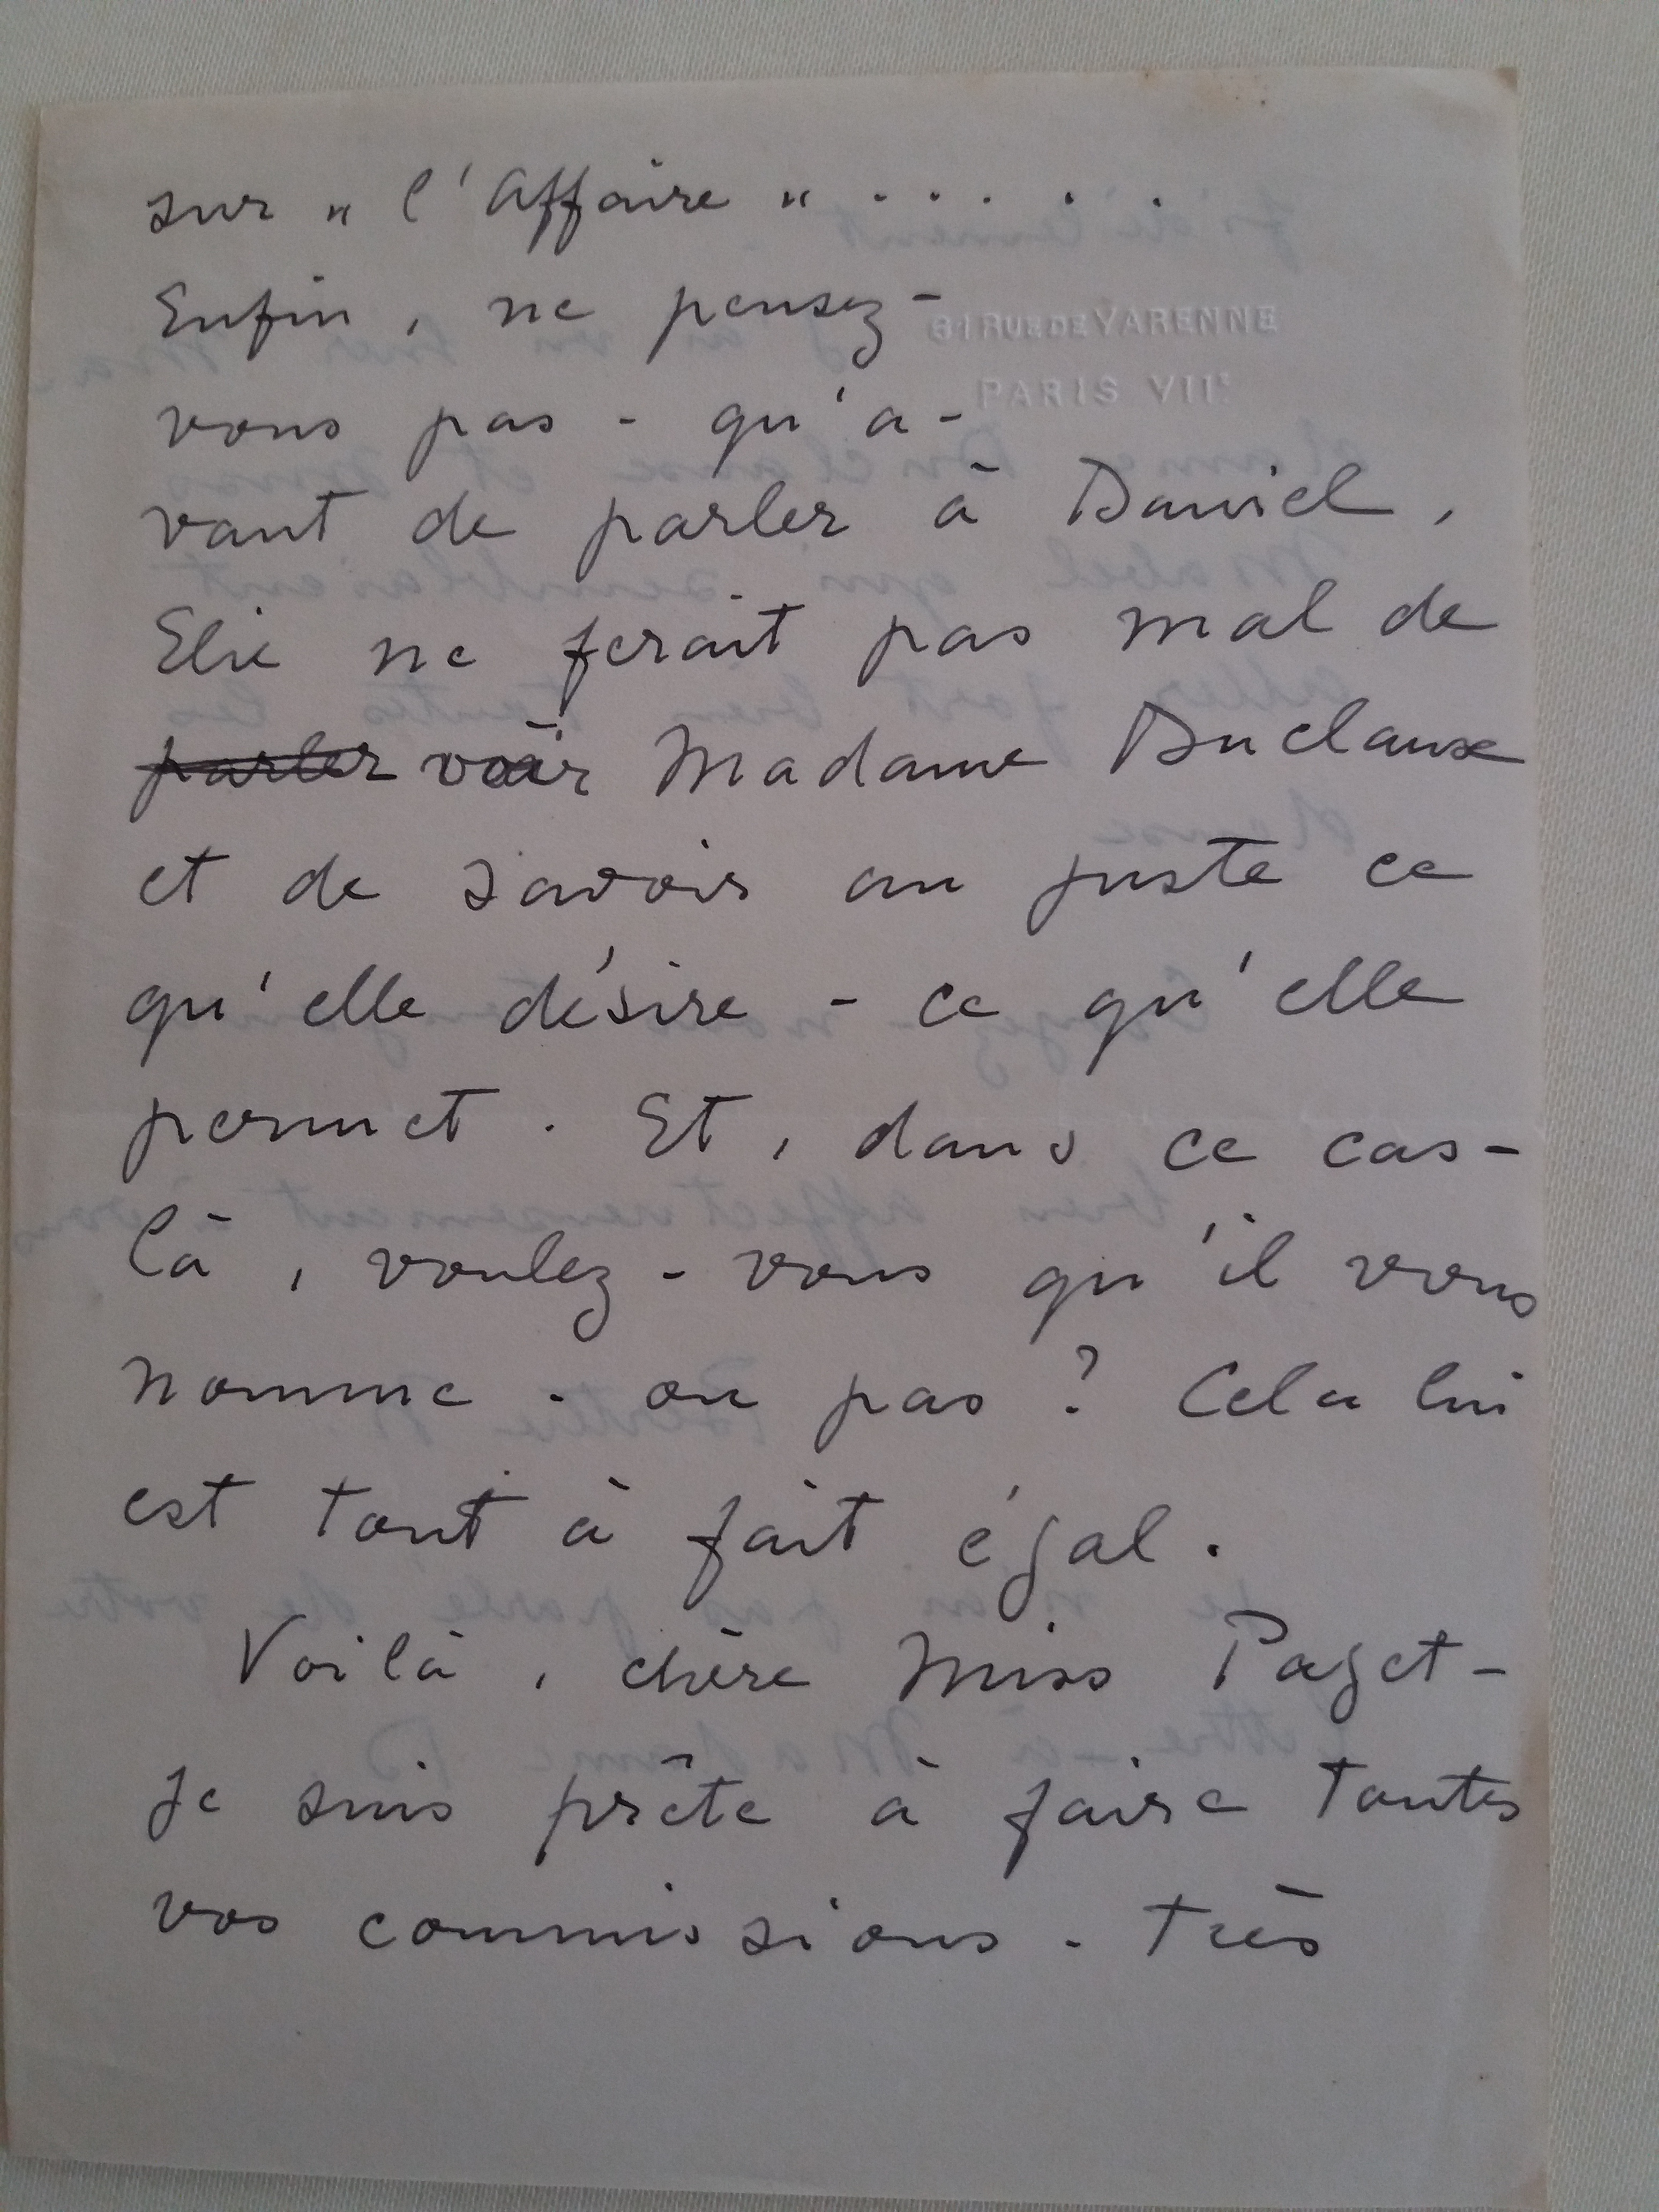 sur " l'Affaire " . . . . .
Enfin, ne pensez-
61 RUE DE VARENNE
PARIS VIIe
vous pas - qu'a-
vant de parler à Daniel,
Elie ne ferait pas mal de
parler voir Madame Duclaux
et de savoir au juste ce
qu'elle désire - ce qu'elle
permet. Et, dans ce cas-
là, voulez-vous qu'il vous
nomme - ou pas ? Cela lui
est tout à fait égal.
Voilà, chère Miss Paget -
Je suis prête à faire toutes
vos commissions. Très